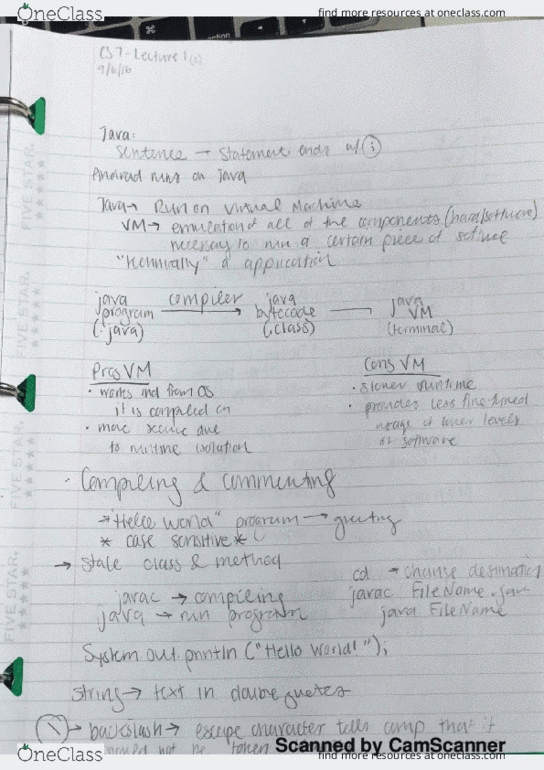 OneClass
find more resources at oneclass.com
CS7-Lecture 1
9/6/16
Java:
Sentence → Statement ends w/ ;
Android runs on Java
Java → Run on Virtual Machine
VM → emulation of all of the components (hard/software)
necessary to run a certain piece of software
"technically" a application
java program (.java) compiler → java bytecode (.class) — java VM (terminal)
Pros VM
• works ind from OS
it is compiled on
• more secure due
to runtime isolation
Cons VM
• slower runtime
• provides less fine-tuned
usage of lower levels
of software
• Compiling & Commenting
→ "Hello World" program → greeting
* case sensitive *
→ State class & method
javac → compiling
java → run program
cd → change destination
javac FileName.java
java FileName
System.out.println ("Hello World!");
String → text in double quotes
\ → backslash → escape character tells comp that it
not be token
FIVE STAR.
FIVE STAR.
FIVE STAR.
FIVE STAR.
Scanned by CamScanner
OneClass
find more resources at oneclass.com